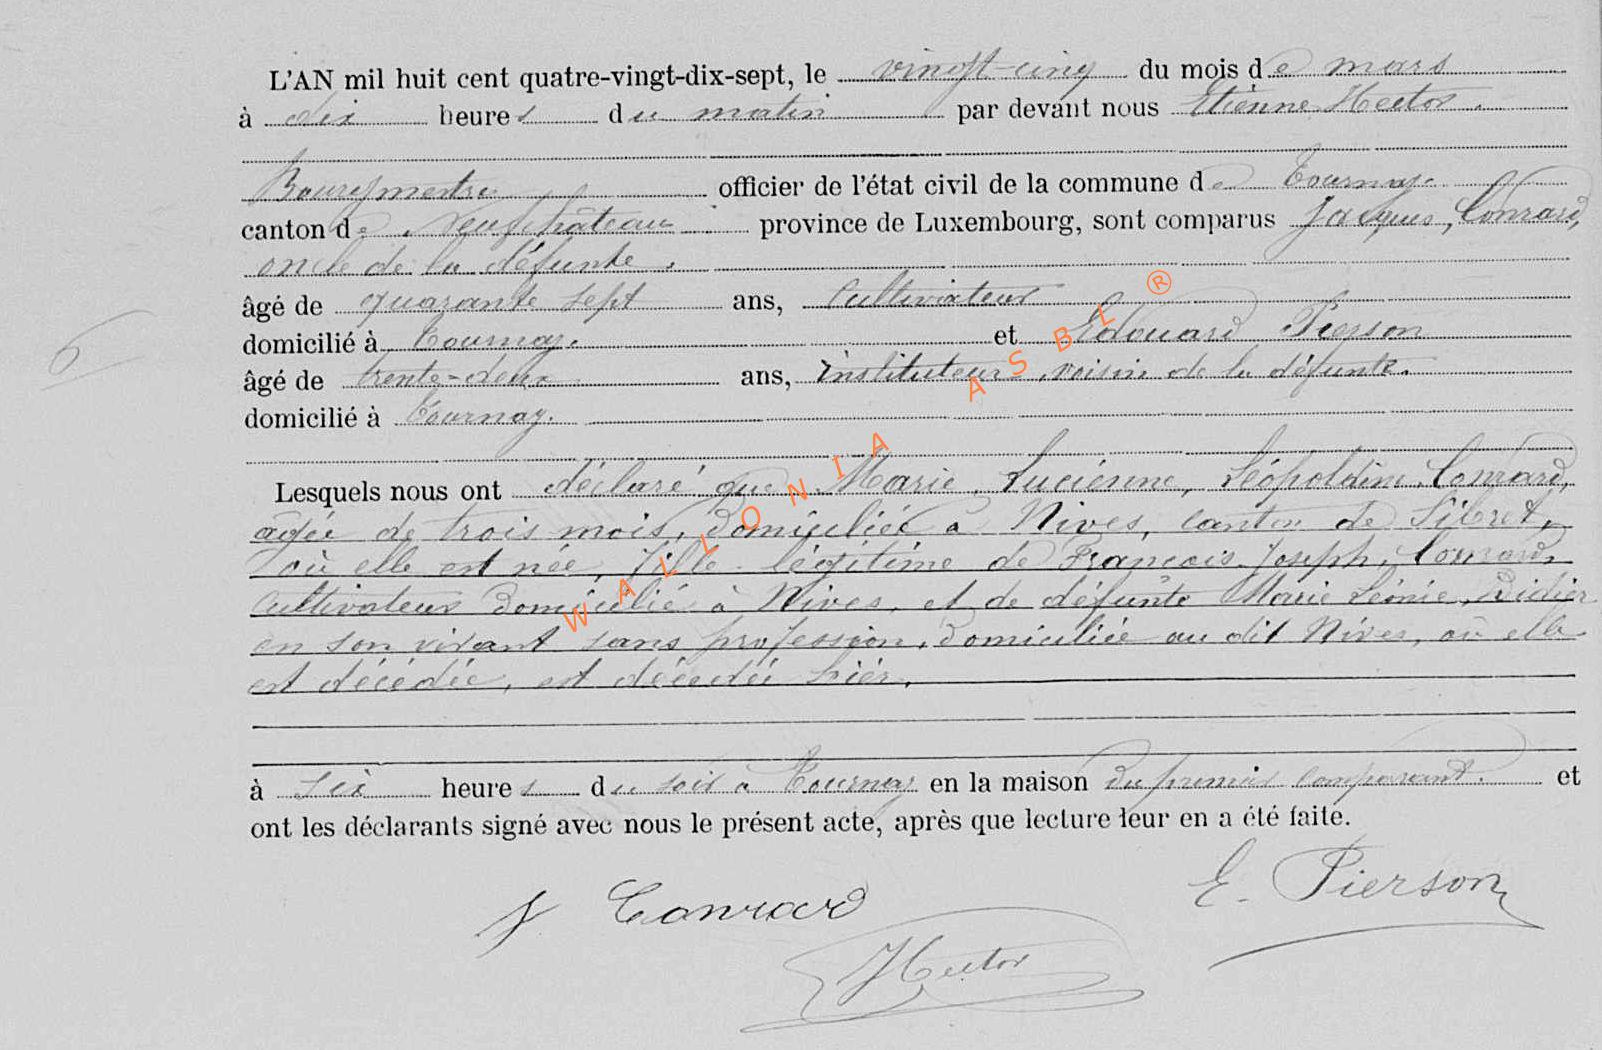 L'AN mil huit cent quatre-vingt-dix-sept, le vingt-cinq du mois de mars
à dix heures du matin par devant nous Etienne Hector.
Bourgmestre officier de l'état civil de la commune de Tournay.
canton de Neufchâteau province de Luxembourg, sont comparus Jacques, Conrard,
oncle de la défunte.
âgé de quarante sept ans, Cultivateur
domicilié à Tournay. et Edouard Pierson
âgé de trente-deux ans, Instituteur, voisin de la défunte.
domicilié à Tournay.
6
Lesquels nous ont déclaré que Marie, Lucienne, Léopoldine, Conrard,
âgée de trois mois, domiciliée à Nives, canton de Sibret,
où elle est née, fille légitime de François Joseph, Conrard,
cultivateur domicilié à Nives, et de défunte Marie Léonie, Didier
en son vivant sans profession, domiciliée au dit Nives, où elle
est décédée, est décédée hier,
à six heures du soir à Tournay en la maison du premier comparant. et
ont les déclarants signé avec nous le présent acte, après que lecture leur en a été faite.
J Conrard
E. Pierson
Hector
WALLONIA ASBL ®